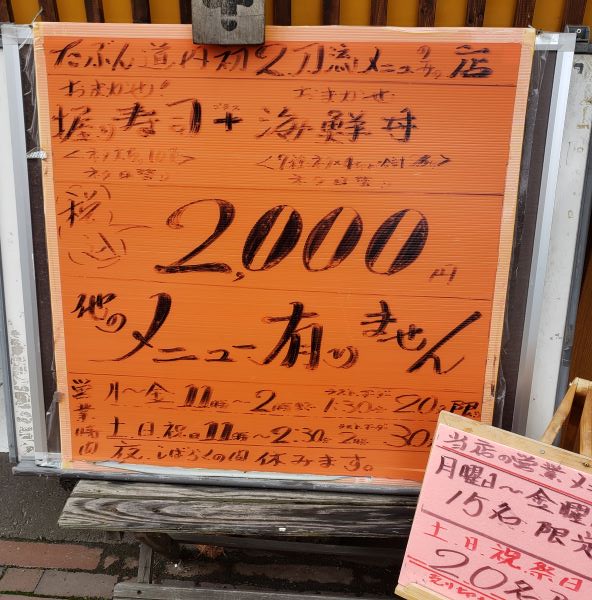 たぶん道内初2刀流メニューの店
おまかせ おまかせ
握り寿司＋海鮮丼
ネタ日替り ネタ日替り
税
2,000円
他のメニュー有りません
営業時間
月〜金 11時〜2時 ラストオーダー 1:30 20名限
土日祝 11時〜2:30 ラストオーダー 2時 30
夜、しばらくの間休みます。
当店の営業
月曜日〜金曜
15名限定
土日祝祭日
20名